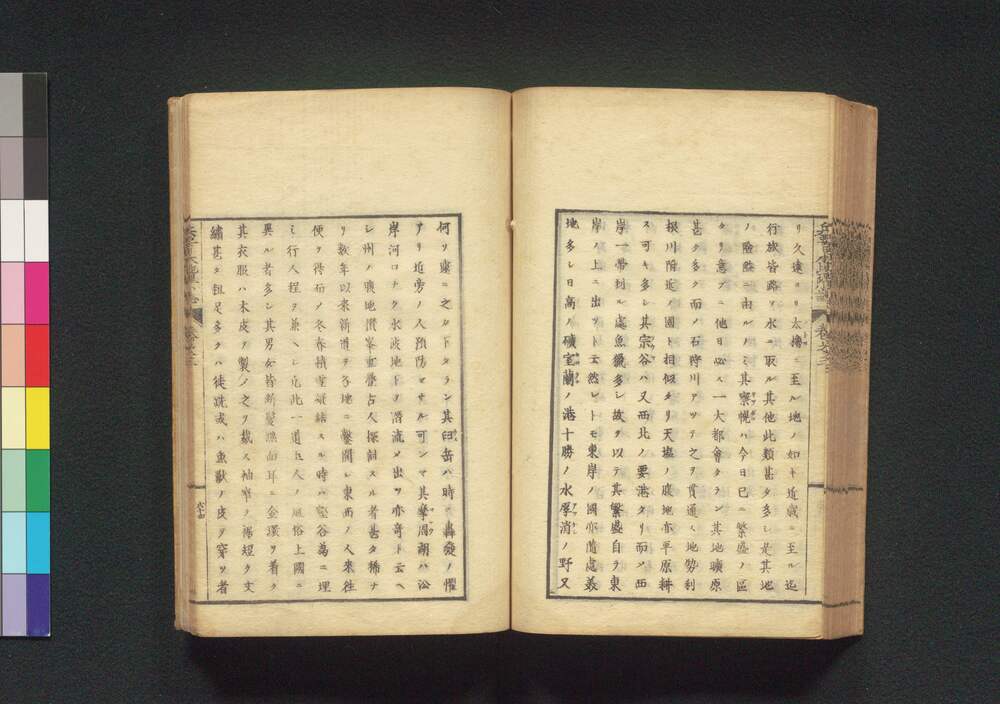 リ久遠ヨリ太櫓ニ至ル地ノ如キ近歳ニ至ル迄
行旅皆路ヲ水ニ取ル其他此類甚タ多シ是其地
ノ險
ニ由ルノミ其寮幌ハ今日已ニ繁盛ノ區
タリ意フニ他日必ス一大都會タラン其地曠原
甚タ多ク而ノ石狩川アツテ之ヲ貫通ス地勢利
根川附近ノ國ト相似タリ天塩ノ腹地亦平原耕
ス可キ多シ其宗谷ハ又西北ノ要港タリ而ノ西
岸一帶到ル處魚獵多シ故ヲ以テ其繁盛自ラ東
岸ノ上ニ出ツト云然レトモ東岸ノ國亦隨處美
地多シ日高ノ
室蘭ノ港十勝ノ水厚
ノ野又
何リ
ニ之
タラン其臼岳ハ時ニ轟發ノ懼
アリ近旁ノ人預防セサル可
其摩周湖ハ公
岸河口ナク水波地下ヲ潛流メ出ツ亦奇ト云ヘ
シ州ノ腹地
峯重疊古人探
スル者甚タ稀ナ
リ數年以來新道ヲ各地ニ鑿開シ東西ノ人來往
便ヲ得
ノ冬春積雪
結スル時ハ谿谷為ニ理
ミ行人程ヲ兼ヘシ
此一道
人ノ風俗上國ニ
異ル者多シ其男女皆斷髮
面耳ニ金環ヲ着ク
其衣服ハ木皮ヲ製ノ之ヲ織ス袖窄ク
短ク文
繡甚タ粗足多クハ徒跣或ハ魚獸ノ皮ヲ穿ツ者